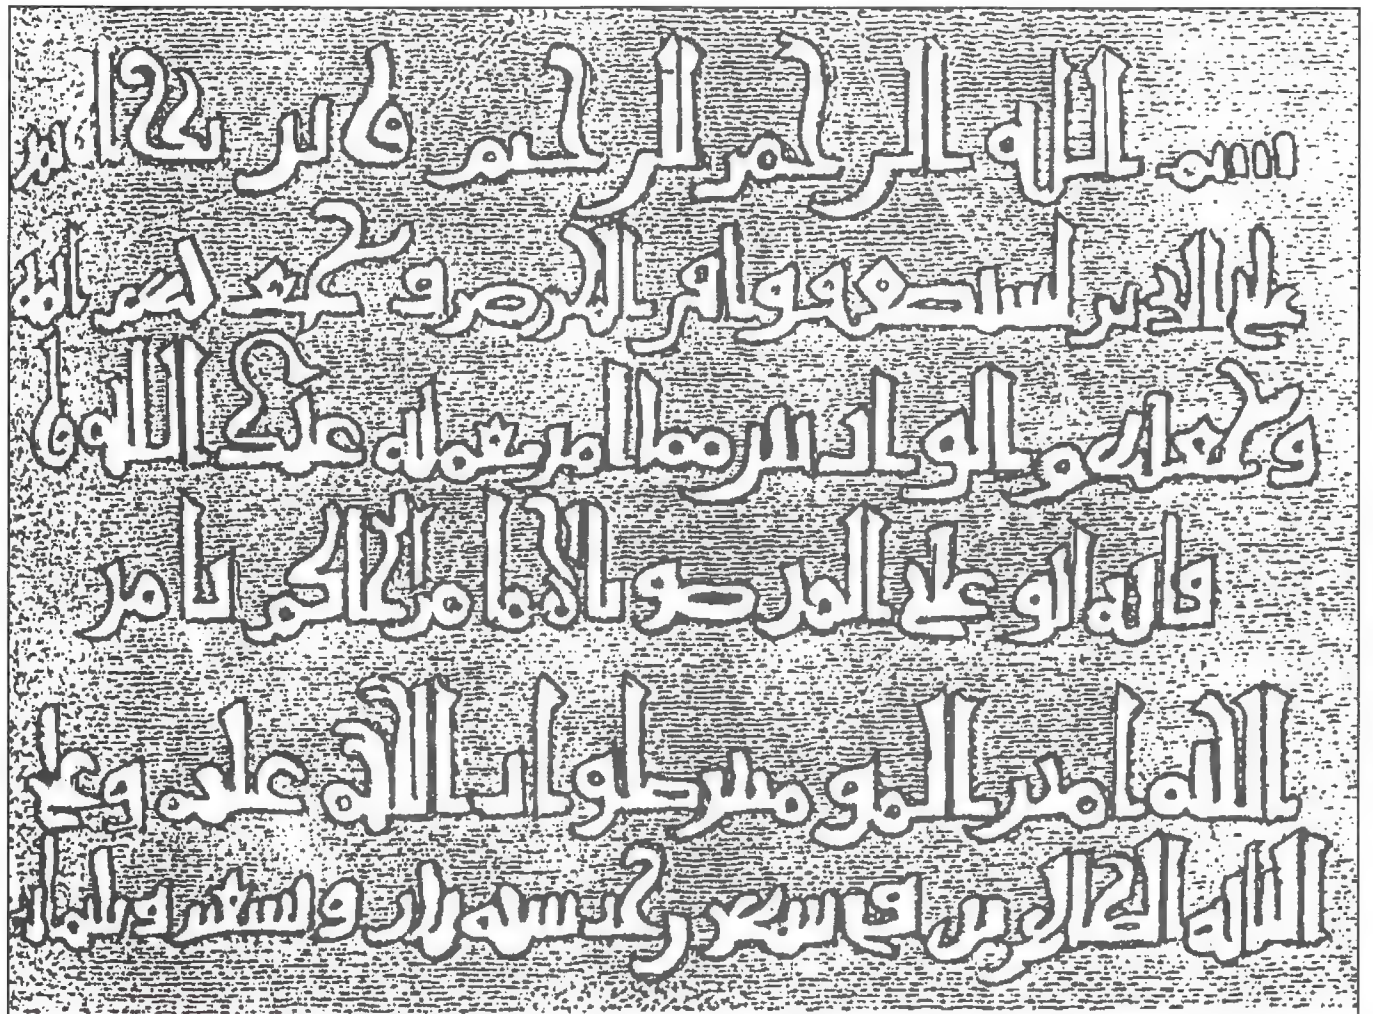 بسم الله الرحمن الرحيم ونريد ان نمن
على الذين استضعفوا في الارض ونجعلهم ائمة
ونجعلهم الوارثين مما امر بعمله عبد الله و
وليه ابو علي المنصور الامام الحاكم بامر
الله امير المؤمنين صلوات الله عليه وعلى
ابائه الطاهرين في شهر رجب سنة ثلث وتسعين وثلثمائة